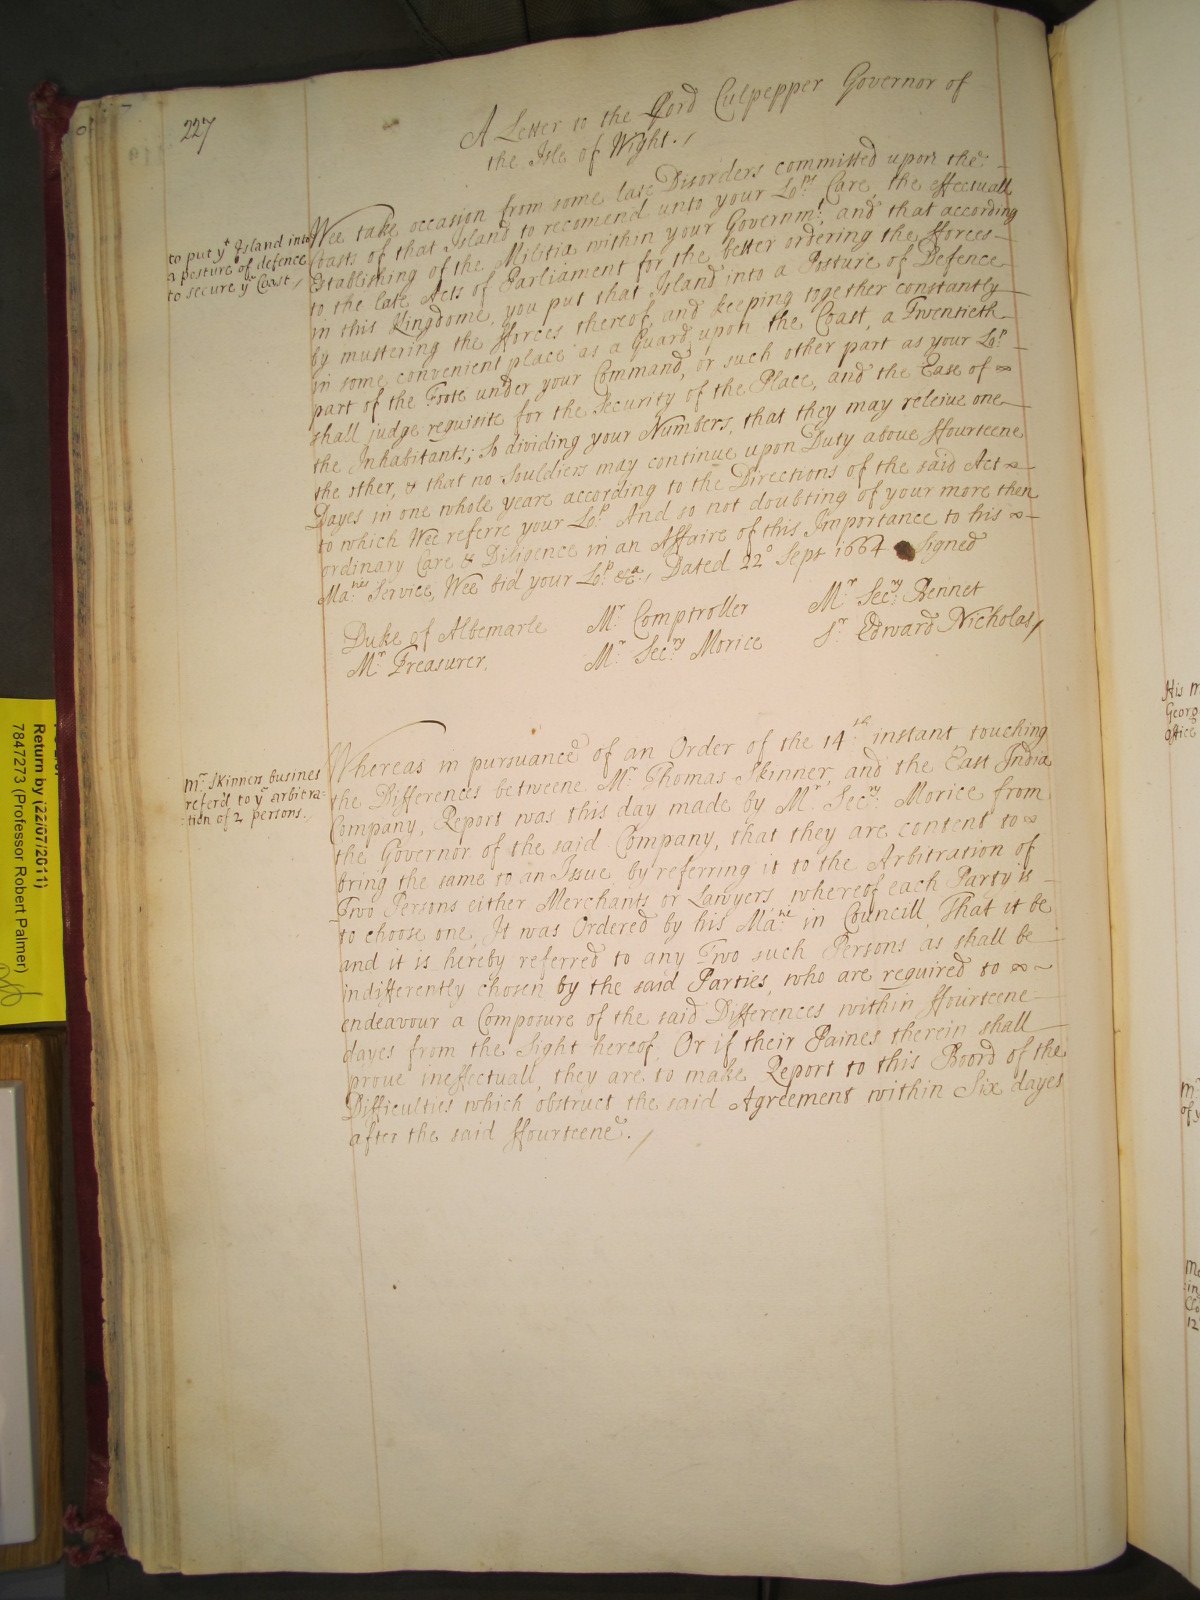 227
A Letter to the Lord Culpepper Governor of
the Isle of Wight./
to put yt Island into
a posture of defence
to secure ye Coast/
Wee take occasion from some late Disorders committed upon the
Coasts of that Island to recomend unto your Lopps Care, the effectuall
Establishing of the Militia within your Governmt. and that according
to the late Acts of Parliament for the better ordering the fforces
in this Kingdome, you put that Island into a Posture of Defence
by mustering the fforces thereof, and keeping together constantly
in some convenient place as a Guard upon the Coast, a Twentieth
part of the Foote under your Command, or such other part as your Lop.
shall judge requisite for the Security of the Place, and the Ease of
the Inhabitants; So dividing your Numbers, that they may releive one
the other, & that no Souldiers may continue upon Duty above ffourteene
Dayes in one whole yeare according to the Directions of the said Act
to which Wee referre your Lop. And so not doubting of your more then
ordinary Care & Diligence in an Affaire of this Importance to his
Mates Service, Wee bid your Lop. &ca., Dated 22o Sept 1664 Signed
Duke of Albemarle Mr. Comptroller Mr. Secry. Bennet
Mr. Treasurer. Mr. Secry Morice Sr. Edward Nicholas/
mr. Skinners busines
refer'd to ye arbitra=
:tion of 2 persons./
Whereas in pursuance of an Order of the 14th instant touching
the Differences betweene Mr. Thomas Skinner, and the East India
Company, Report was this day made by Mr. Secry. Morice from
the Governor of the said Company, that they are content to
bring the same to an Issue by referring it to the Arbitration of
Two Persons either Merchants or Lawyers whereof each Party is
to choose one, It was Ordered by his Matie in Councill, That it be
and it is hereby referred to any Two such Persons as shall be
indifferently chosen by the said Parties, who are required to
endeavour a Composure of the said Differences within ffourteene
dayes from the Sight hereof, Or if their Paines therein shall
prove ineffectuall, they are to make Report to this Board of the
Difficulties which obstruct the said Agreement within Six dayes
after the said ffourteene./
Return by (22/07/2011)
7847273 (Professor Robert Palmer)
His M
Georg
office